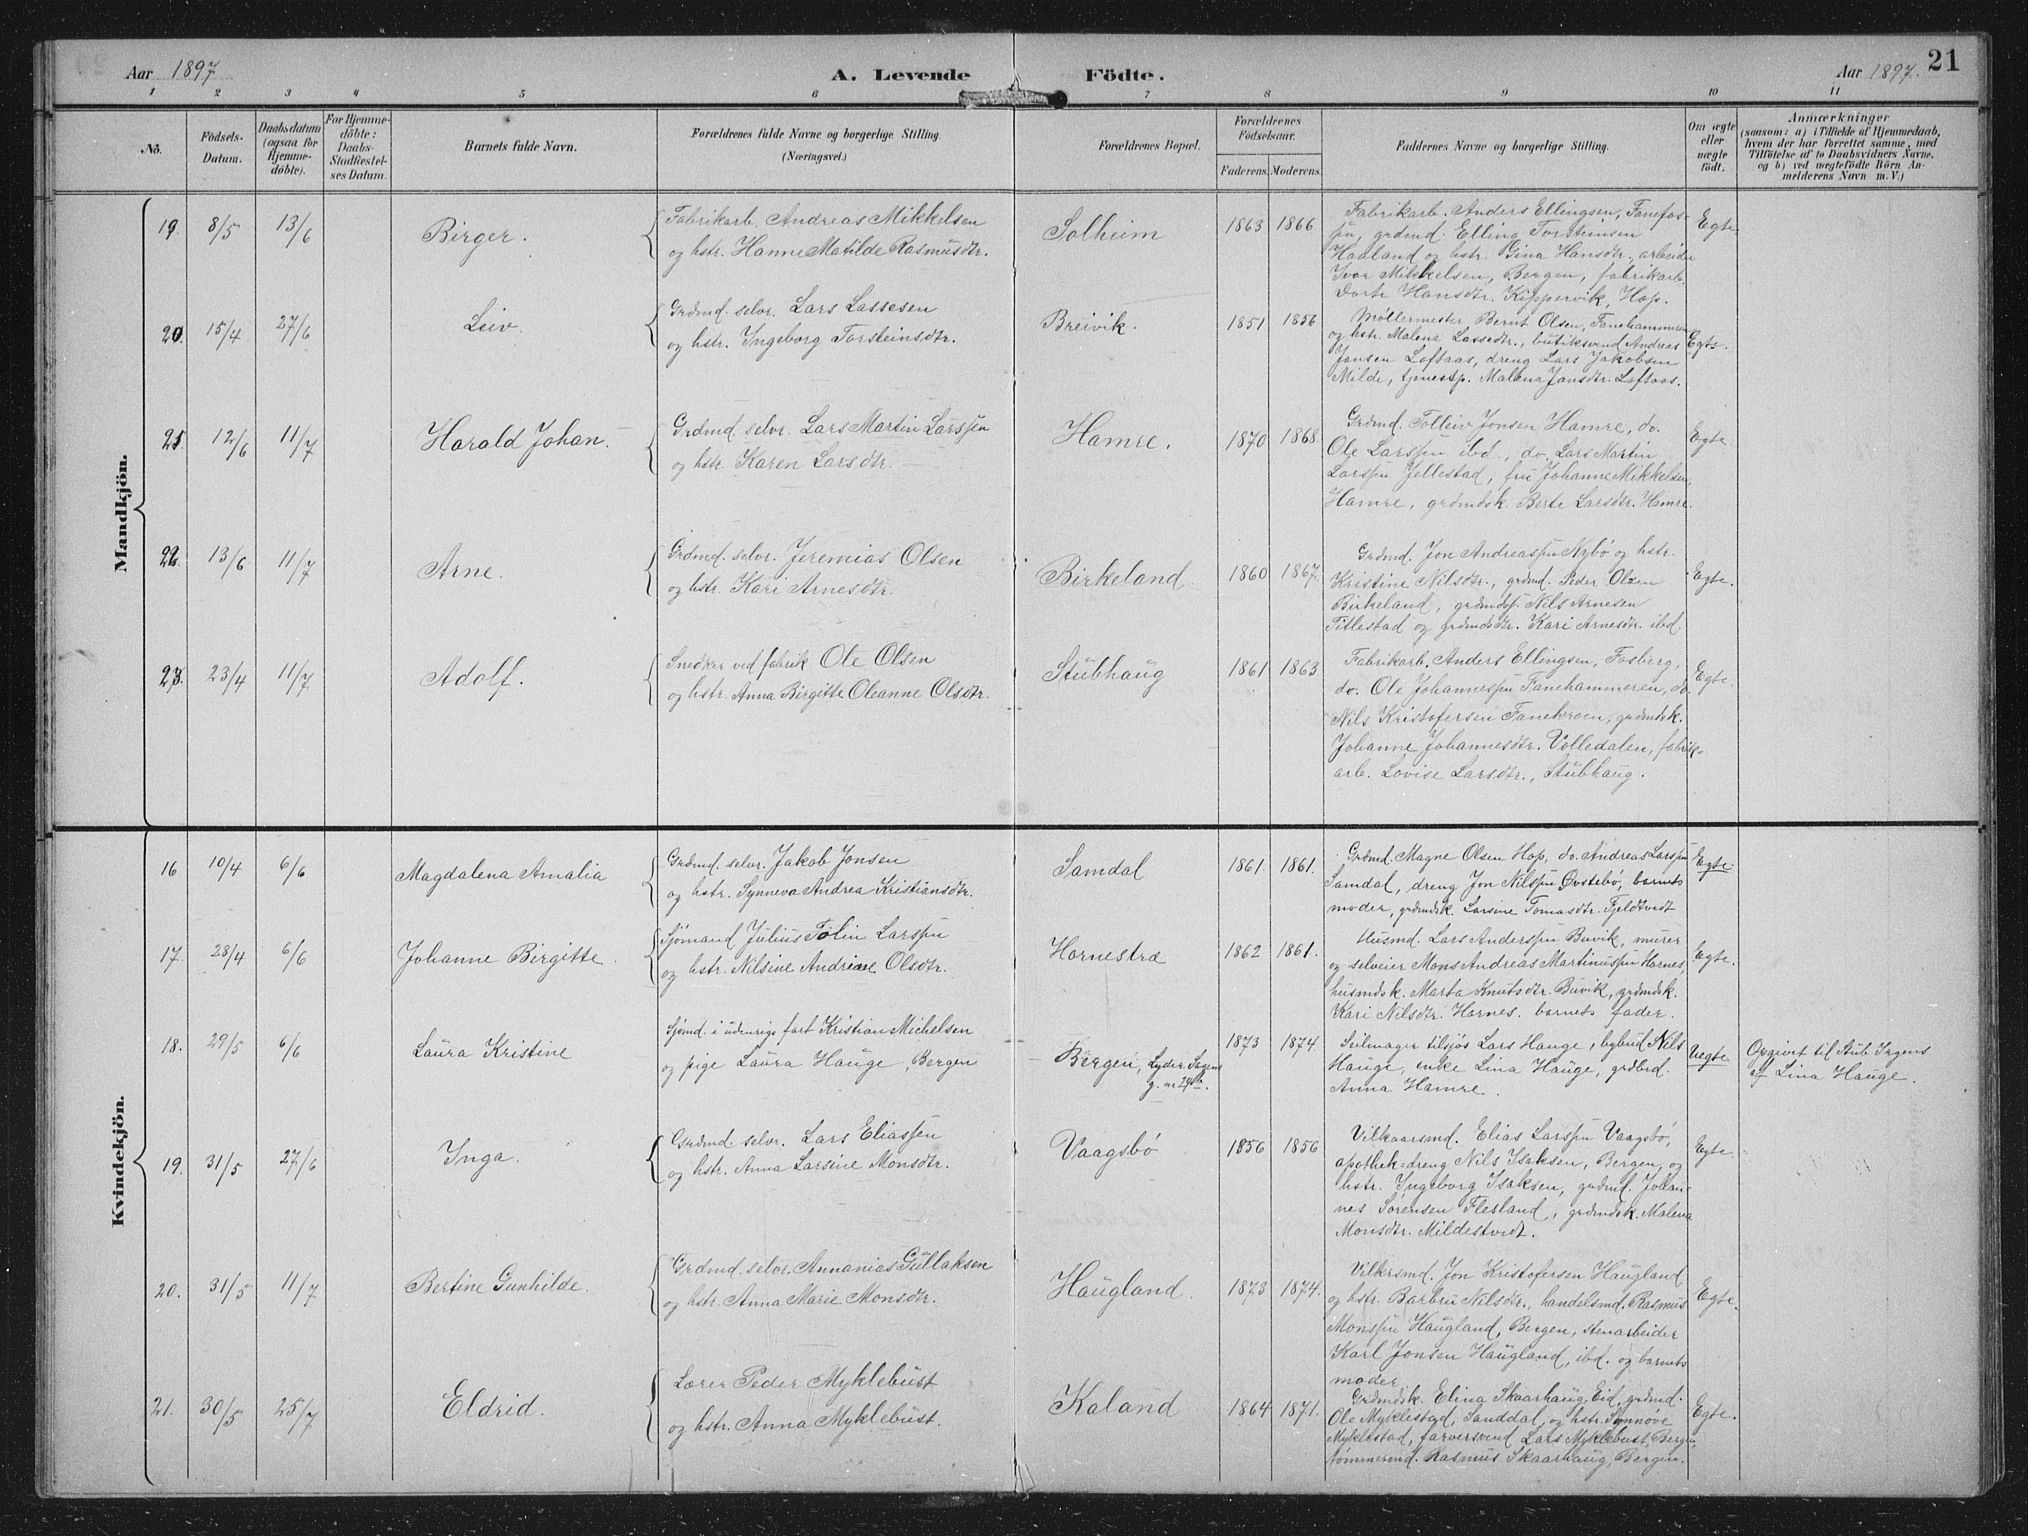 Aar 1897 A. Levende Fødte. Aar 1897. 21
1 2 3 4 5 6 7 8 9 10 11
No. Födsels-Datum. Daabsdatum (ogsaa for Hjemmedöbte). For Hjemmedöbte: Daabs-Stadfæstelses Datum. Barnets fulde Navn. Forældrenes fulde Navne og borgerlige Stilling. (Næringsvei.) Forældrenes Bopæl. Forældrenes Födselsaar. Faderens. Moderens. Faddernes Navne og borgerlige Stilling. Om ægte eller uægte födt. Anmærkninger (saasom: a) i Tilfælde af Hjemmedaab, hvem der har forrettet samme, med Tilföielse af to Daabsvidners Navne, og b) ved uægtefödte Börn Anmelderens Navn m. V.)
Mandkjön.
19. 8/5 13/6 Birger. Fabrikarb. Andreas Mikkelsen
og hstr. Hanne Matilde Rasmusdtr. Solheim 1863 1866
Fabrikarb. Anders Ellingsen, Fanefos-
sen, grdmd. Elling Torsteinsen
Haaland og hstr. Gina Hansdtr., arbeider
Ivar Mikkelsen, Bergen, fabrikarb.
Dorte Hansdtr. Kippervik, Hop. Egte
20. 15/4 27/6 Leiv. Grdmd. selvr. Lars Lassesen
og hstr. Ingeborg Torsteinsdtr. Breivik. 1851 1856
Møllermester Bernt Olsen, Fanehammeren
og hstr. Malena Lassedtr., butiksvend Andreas
Jansen Loftaas, dreng Lars Jakobsen
Milde, tjenestp. Malena Jansdtr. Loftaas. Egte.
21. 12/6 11/7 Harald Johan. Grdmd. selvr. Lars Martin Larssen
og hstr. Karen Larsdtr. Hamre. 1870 1868.
Grdmd. Tolleiv Jonsen Hamre, do.
Ole Larssen ibd., do. Lars Martin
Larssen Jellestad, fru Johanne Mikkelsen,
Hamre, grdmdsk. Berte Larsdtr. Hamre. Egte.
22. 13/6 11/7 Arne. Grdmd. selvr. Jeremias Olsen
og hstr. Kari Arnesdtr. Birkeland. 1860 1867.
Grdmd. Jon Andreassen Nybø og hstr.
Kristine Nilsdtr., grdmd. Peder Olsen
Birkeland, grdmds. Nils Arnesen
Titlestad og grdmdsdtr. Kari Arnesdtr. ibd. Egte.
23. 23/4 11/7 Adolf. Snedker ved fabrik Ole Olsen
og hstr. Anna Birgitte Oleanne Olsdtr. Stubhaug 1861 1863
Fabrikarb. Anders Ellingsen, Fosberg,
do. Ole Johannessen Fanehammeren, do.
Nils Kristofersen Fanekroen, grdmdsk.
Johanne Johannesdtr. Volledalen, fabrik-
arb. Lovise Larsdtr., Stubhaug. Egte.
Kvindekjön.
16 10/4 6/6 Magdalena Amalia Grdmd. selvr. Jakob Jonsen
og hstr. Synneva Andrea Kristiansdtr. Samdal 1861. 1861.
Grdmd. Magne Olsen Hop, do. Andreas Larssen
Samdal, dreng Jon Nilssen Øvstebø, barnets
moder, grdmdsk. Larsine Tomasdtr. Fjeldtvedt Egte.
17. 28/4 6/6 Johanne Birgitte. Sjømand Julius Tolin Larssen
og hstr. Nilsine Andriane Olsdtr. Hornestræ 1862 1861.
Husmd. Lars Anderssen Buvik, murer
og selveier Mons Andreas Martinussen Hornes,
husmdsk. Marta Knutsdtr. Buvik, grdmdsk.
Kari Nilsdtr. Hornes. barnets fader. Egte.
18. 29/5 6/6 Laura Kristine Sjømd. i udenrigs fart Kristian Michelsen
og pige Laura Hauge, Bergen Bergen, Lyder Sagens
g. nr 24 1873 1874.
Seilmager tilsjøs Lars Hauge, bybud Nils
Hauge, enke Lina Hauge, grdbrd.
Anna Hamre. Uegte Opgivet til Stub Irgens
af Lina Hauge.
19. 31/5 27/6 Inga. Grdmd. selvr. Lars Eliassen
og hstr. Anna Larsine Monsdtr. Vaagsbø 1856 1856
Vilkaarsmd. Elias Larssen Vaagsbø,
apothek-dreng Nils Isaksen, Bergen, og
hstr. Ingeborg Isaksen, grdmd. Johan-
nes Sørensen Flesland, grdmdsk. Malena
Monsdtr. Mildestvedt. Egte.
20. 31/5 11/7 Bertine Gunhilde. Grdmd. selvr. Annanias Gullaksen
og hstr. Anna Marie Monsdtr. Haugland. 1873 1874.
Vilkrsmd. Jon Kristofersen Haugland
og hstr. Barbru Nilsdtr., handelsmd. Rasmus
Monssen Haugland, Bergen, stenarbeider
Karl Jonsen Haugland, ibd. og barnets
moder Egte.
21. 30/5 25/7 Eldrid. Lærer Peder Myklebust
og hstr. Anna Myklebust. Kaland 1864 1871.
Grdmdsk. Elina Skaarhaug, Eid, grdmd.
Ole Myklestad, Sanddal, og hstr. Synnøve
Myklestad, farversvend Lars Myklebust, Bergen,
tømmermd. Rasmus Skaarhaug, Bergen. Egte.